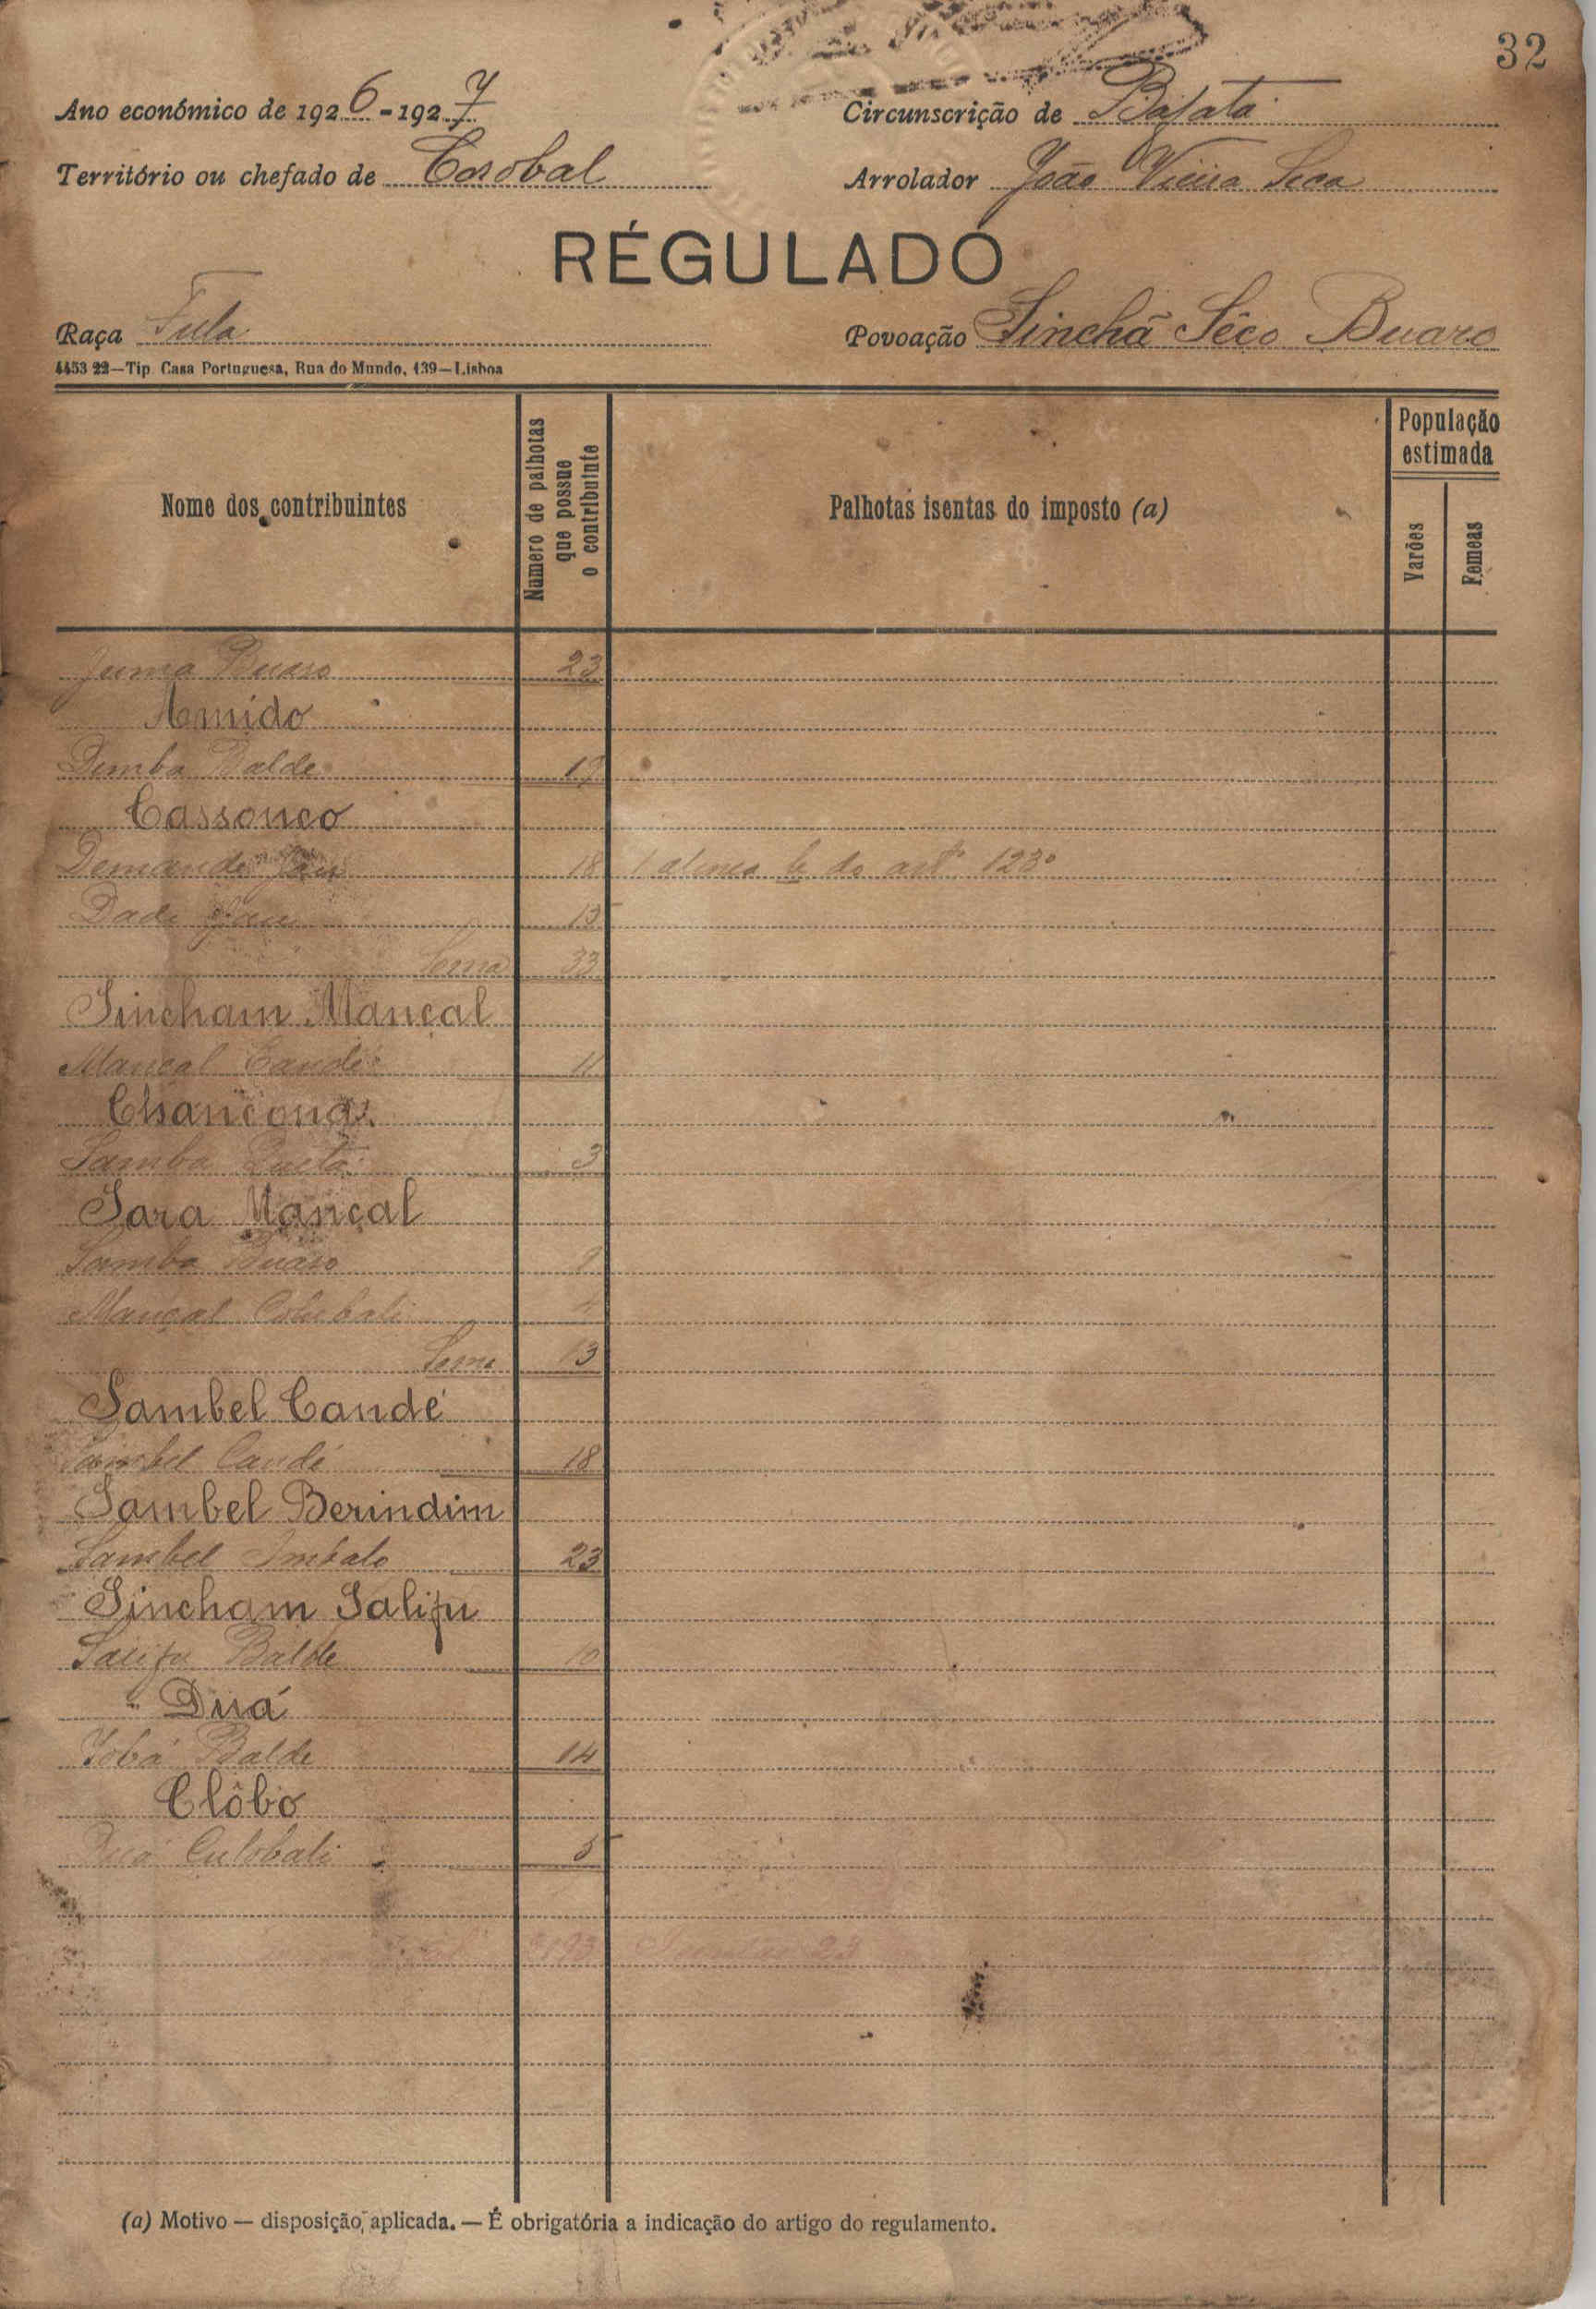 32
Ano económico de 1926-1927
Circunscrição de Bafatá
Território ou chefado de Corobal
Arrolador João Vieira Seca
RÉGULADO
Raça Fula
Povoação Sinchã Sêco Buaro
4453 22—Tip. Casa Portuguesa, Rua do Mundo, 139—Lisboa
Nome dos contribuintes
Numero de palhotas que possue o contribuinte
Palhotas isentas do imposto (a)
População estimada
Varões
Femeas
Juma Buaro 23
Amido
Demba Balde
Cassonco
18 1 alinea b do artº 123º
Dade 15
Soma 33
Sincham Mançal
Mançal Candé 11
Samba 3
Sara Mançal
Samba Buaro 9
Mançal Colubali 4
Soma 13
Sambel Candé
Sambel Candé 18
Sambel Berindim
Sambel Imbalo 23
Sincham Salifu
Salifu Balde 10
Duá
Iobá Balde 14
Clôbo
Duá Culobali 5
(a) Motivo — disposição aplicada. — É obrigatória a indicação do artigo do regulamento.